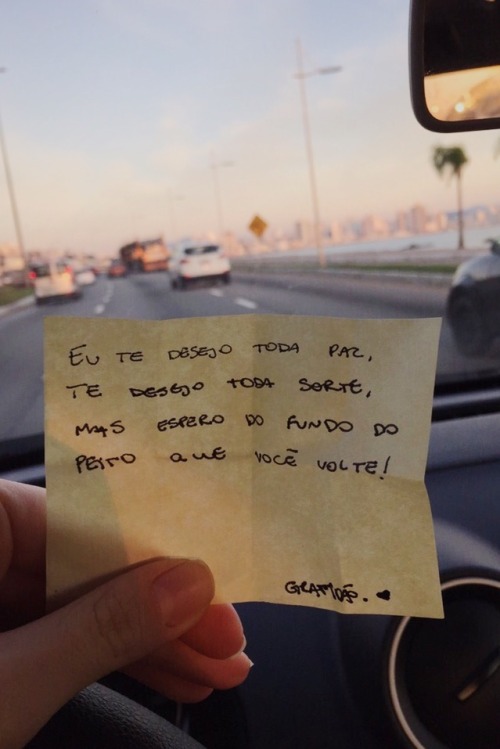 EU TE DESEJO TODA PAZ,
TE DESEJO TODA SORTE,
MAS ESPERO DO FUNDO DO
PEITO QUE VOCÊ VOLTE!
GRATIDÃO. ♥